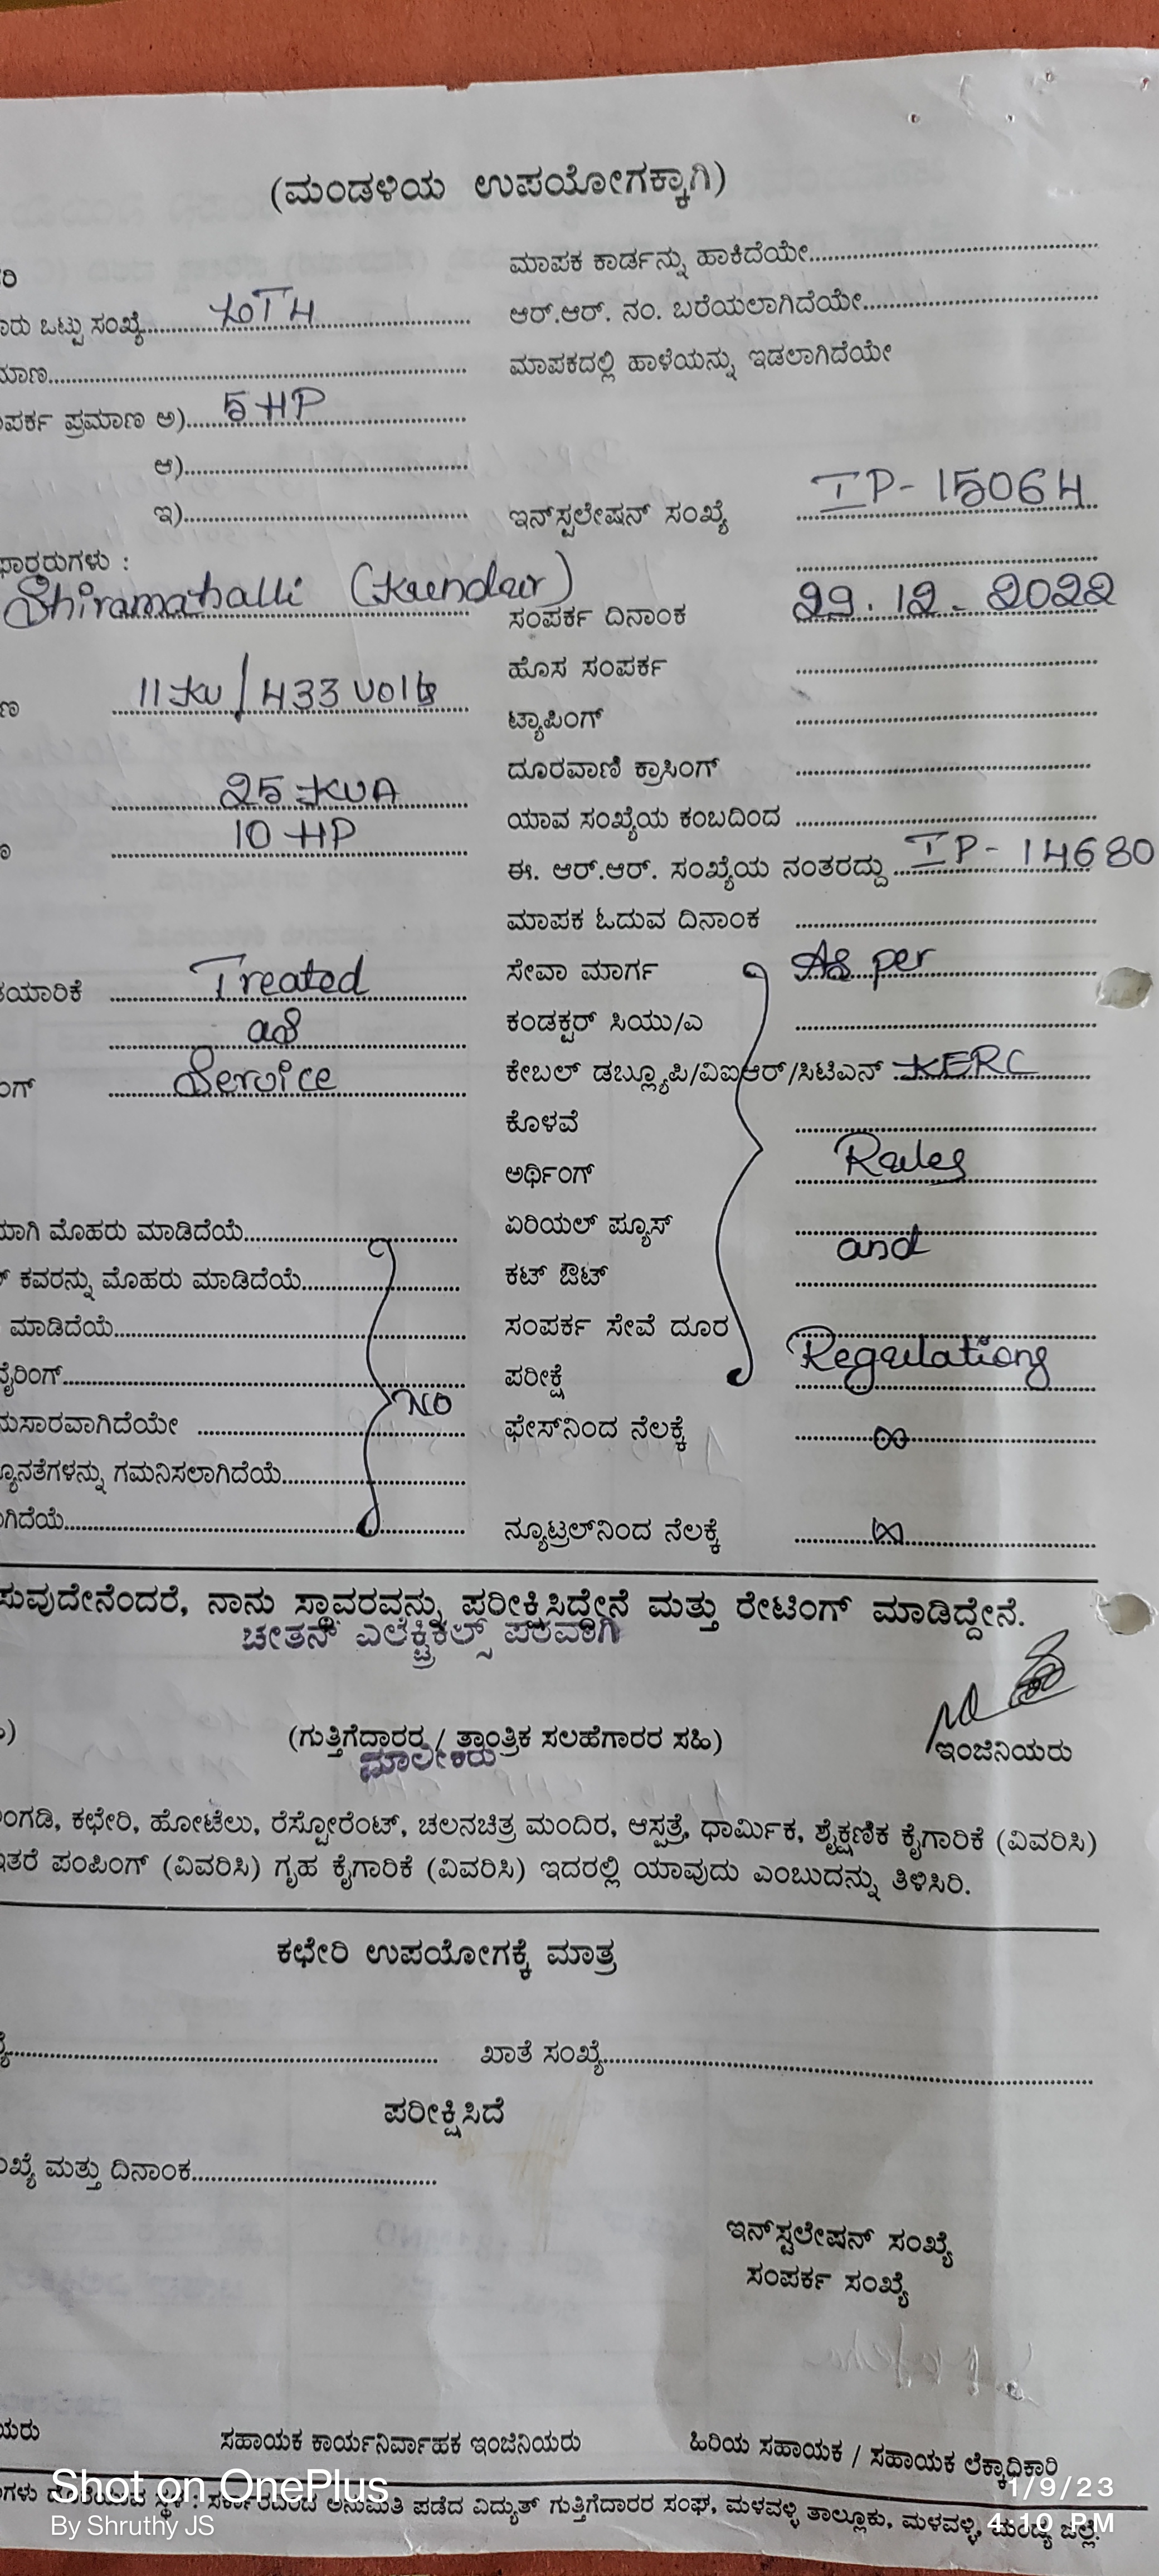 (ಮಂಡಳಿಯ ಉಪಯೋಗಕ್ಕಾಗಿ)
ರಿ
ಮಾಪಕ ಕಾರ್ಡನ್ನು ಹಾಕಿದೆಯೇ
ಾರು ಒಟ್ಟು ಸಂಖ್ಯೆ
ಆರ್.ಆರ್. ನಂ. ಬರೆಯಲಾಗಿದೆಯೇ
ಮಾಣ
ಮಾಪಕದಲ್ಲಿ ಹಾಳೆಯನ್ನು ಇಡಲಾಗಿದೆಯೇ
ಪರ್ಕ ಪ್ರಮಾಣ ಅ) 5 HP
ಆ)
ಇ)
ಇನ್‌ಸ್ಟಲೇಷನ್ ಸಂಖ್ಯೆ IP-15064
Shiramahalli (Kundur)
ಸಂಪರ್ಕ ದಿನಾಂಕ 29.12.2022
ಹೊಸ ಸಂಪರ್ಕ
11 KV/433 Volts
ಟ್ಯಾಪಿಂಗ್
ದೂರವಾಣಿ ಕ್ರಾಸಿಂಗ್
25 KVA
ಯಾವ ಸಂಖ್ಯೆಯ ಕಂಬದಿಂದ
10 HP
ಈ. ಆರ್.ಆರ್. ಸಂಖ್ಯೆಯ ನಂತರದ್ದು IP-14680
ಮಾಪಕ ಓದುವ ದಿನಾಂಕ
ತಯಾರಿಕೆ Treated
ಸೇವಾ ಮಾರ್ಗ As per
as
ಕಂಡಕ್ಟರ್ ಸಿಯು/ಎ
ಂಗ್ Service
ಕೇಬಲ್ ಡಬ್ಲ್ಯೂಪಿ/ವಿಐಆರ್/ಸಿಟಿಎಸ್ KERC
ಕೊಳವೆ
ಅರ್ಥಿಂಗ್ Rules
ಯಾಗಿ ಮೊಹರು ಮಾಡಿದೆಯೆ
ಏರಿಯಲ್ ಪ್ಯೂಸ್ and
್ ಕವರನ್ನು ಮೊಹರು ಮಾಡಿದೆಯೆ
ಕಟ್ ಔಟ್
ಮಾಡಿದೆಯೆ
ಸಂಪರ್ಕ ಸೇವೆ ದೂರ
ವೈರಿಂಗ್
ಪರೀಕ್ಷೆ Regulations
NO
ನುಸಾರವಾಗಿದೆಯೇ
ಫೇಸ್‌ನಿಂದ ನೆಲಕ್ಕೆ ∞
ನ್ಯೂನತೆಗಳನ್ನು ಗಮನಿಸಲಾಗಿದೆಯೆ
ಗಿದೆಯೆ
ನ್ಯೂಟ್ರಲ್‌ನಿಂದ ನೆಲಕ್ಕೆ ∞
ಸುವುದೇನೆಂದರೆ, ನಾನು ಸ್ಥಾವರವನ್ನು ಪರೀಕ್ಷಿಸಿದ್ದೇನೆ ಮತ್ತು ರೇಟಿಂಗ್ ಮಾಡಿದ್ದೇನೆ.
ಚೇತನ್ ಎಲೆಕ್ಟ್ರಿಕಲ್ಸ್ ಪರವಾಗಿ
(ಗುತ್ತಿಗೆದಾರರ / ತಾಂತ್ರಿಕ ಸಲಹೆಗಾರರ ಸಹಿ)
ಇಂಜಿನಿಯರು
ಮಾಲೀಕರು
ಅಂಗಡಿ, ಕಛೇರಿ, ಹೋಟೆಲು, ರೆಸ್ಟೋರೆಂಟ್, ಚಲನಚಿತ್ರ ಮಂದಿರ, ಆಸ್ಪತ್ರೆ, ಧಾರ್ಮಿಕ, ಶೈಕ್ಷಣಿಕ ಕೈಗಾರಿಕೆ (ವಿವರಿಸಿ)
ಇತರೆ ಪಂಪಿಂಗ್ (ವಿವರಿಸಿ) ಗೃಹ ಕೈಗಾರಿಕೆ (ವಿವರಿಸಿ) ಇದರಲ್ಲಿ ಯಾವುದು ಎಂಬುದನ್ನು ತಿಳಿಸಿರಿ.
ಕಛೇರಿ ಉಪಯೋಗಕ್ಕೆ ಮಾತ್ರ
ಖಾತೆ ಸಂಖ್ಯೆ
ಪರೀಕ್ಷಿಸಿದೆ
ಂಖ್ಯೆ ಮತ್ತು ದಿನಾಂಕ
ಇನ್‌ಸ್ಟಲೇಷನ್ ಸಂಖ್ಯೆ
ಸಂಪರ್ಕ ಸಂಖ್ಯೆ
ಯರು
ಸಹಾಯಕ ಕಾರ್ಯನಿರ್ವಾಹಕ ಇಂಜಿನಿಯರು
ಹಿರಿಯ ಸಹಾಯಕ / ಸಹಾಯಕ ಲೆಕ್ಕಾಧಿಕಾರಿ
ಸ್ಥಳ : ಸರ್ಕಾರದಿಂದ ಅನುಮತಿ ಪಡೆದ ವಿದ್ಯುತ್ ಗುತ್ತಿಗೆದಾರರ ಸಂಘ, ಮಳವಳ್ಳಿ ತಾಲ್ಲೂಕು, ಮಳವಳ್ಳಿ, ಮಂಡ್ಯ ಜಿಲ್ಲೆ.
Shot on OnePlus
By Shruthy JS
1/9/23
4:10 PM